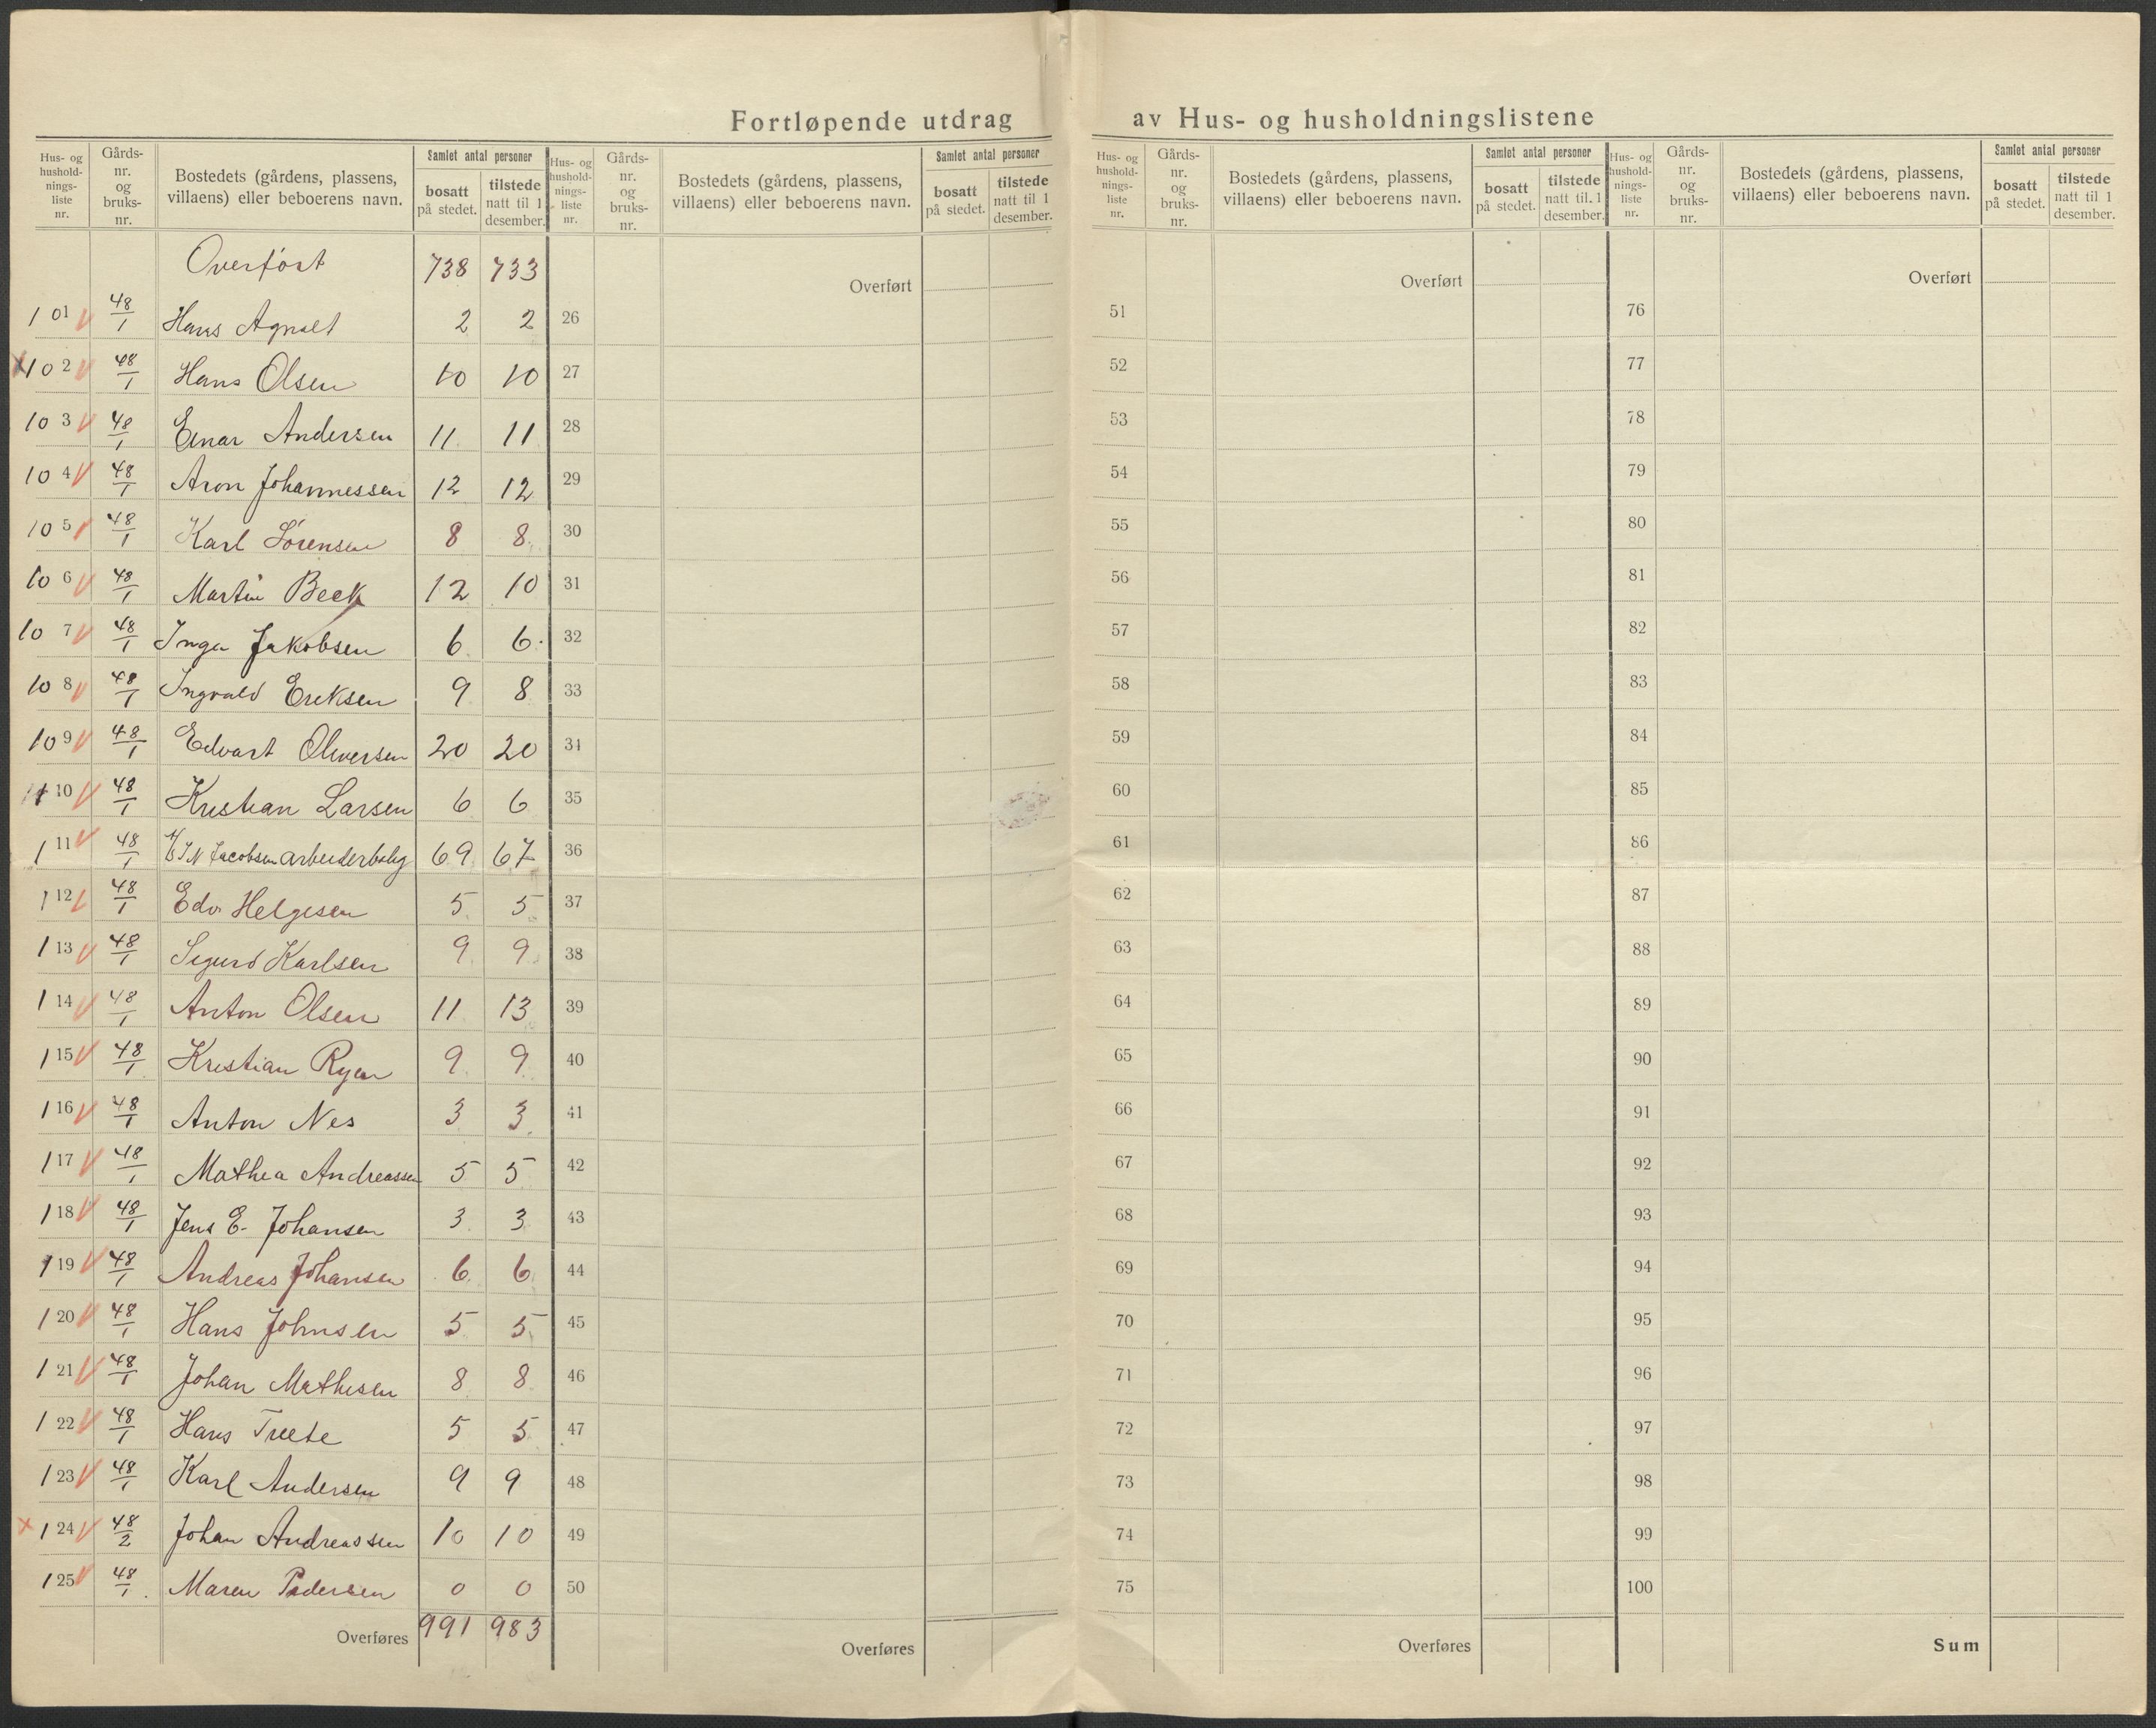 Fortløpende utdrag av Hus- og husholdningslistene
Hus- og hushold-nings-liste nr. Gårds-nr. og bruks-nr. Bostedets (gårdens, plassens, villaens) eller beboerens navn. Samlet antal personer bosatt på stedet. tilstede natt til 1 desember.
Hus- og hushold-nings-liste nr. Gårds-nr. og bruks-nr. Bostedets (gårdens, plassens, villaens) eller beboerens navn. Samlet antal personer bosatt på stedet. tilstede natt til 1 desember.
Hus- og hushold-nings-liste nr. Gårds-nr. og bruks-nr. Bostedets (gårdens, plassens, villaens) eller beboerens navn. Samlet antal personer bosatt på stedet. tilstede natt til 1 desember.
Hus- og hushold-nings-liste nr. Gårds-nr. og bruks-nr. Bostedets (gårdens, plassens, villaens) eller beboerens navn. Samlet antal personer bosatt på stedet. tilstede natt til 1 desember.
Overført 738 733 Overført Overført Overført
101 48/1 Hans Agnalt 2 2 26 51 76
102 48/1 Hans Olsen 10 10 27 52 77
103 48/1 Einar Andersen 11 11 28 53 78
104 48/1 Aron Johannessen 12 12 29 54 79
105 48/1 Karl Sörensen 8 8 30 55 80
106 48/1 Martin Beck 12 10 31 56 81
107 48/1 Inga Jakobsen 6 6 32 57 82
108 48/1 Ingvald Eriksen 9 8 33 58 83
109 48/1 Edvart Oliversen 20 20 34 59 84
110 48/1 Kristian Larsen 6 6 35 60 85
111 48/1 Jacobsen arbeiderbolig 69 67 36 61 86
112 48/1 Edv. Helgesen 5 5 37 62 87
113 48/1 Sigurd Karlsen 9 9 38 63 88
114 48/1 Anton Olsen 11 13 39 64 89
115 48/1 Kristian Ryen 9 9 40 65 90
116 48/1 Anton Nes 3 3 41 66 91
117 48/1 Mathea Andreassen 5 5 42 67 92
118 48/1 Jens E. Johansen 3 3 43 68 93
119 48/1 Andreas Johansen 6 6 44 69 94
120 48/1 Hans Johnsen 5 5 45 70 95
121 48/1 Johan Mathisen 8 8 46 71 96
122 48/1 Hans 5 5 47 72 97
123 48/1 Karl Andersen 9 9 48 73 98
124 48/2 Johan Andreassen 10 10 49 74 99
125 48/1 Maren Pedersen 0 0 50 75 100
Overføres 991 983 Overføres Overføres Sum